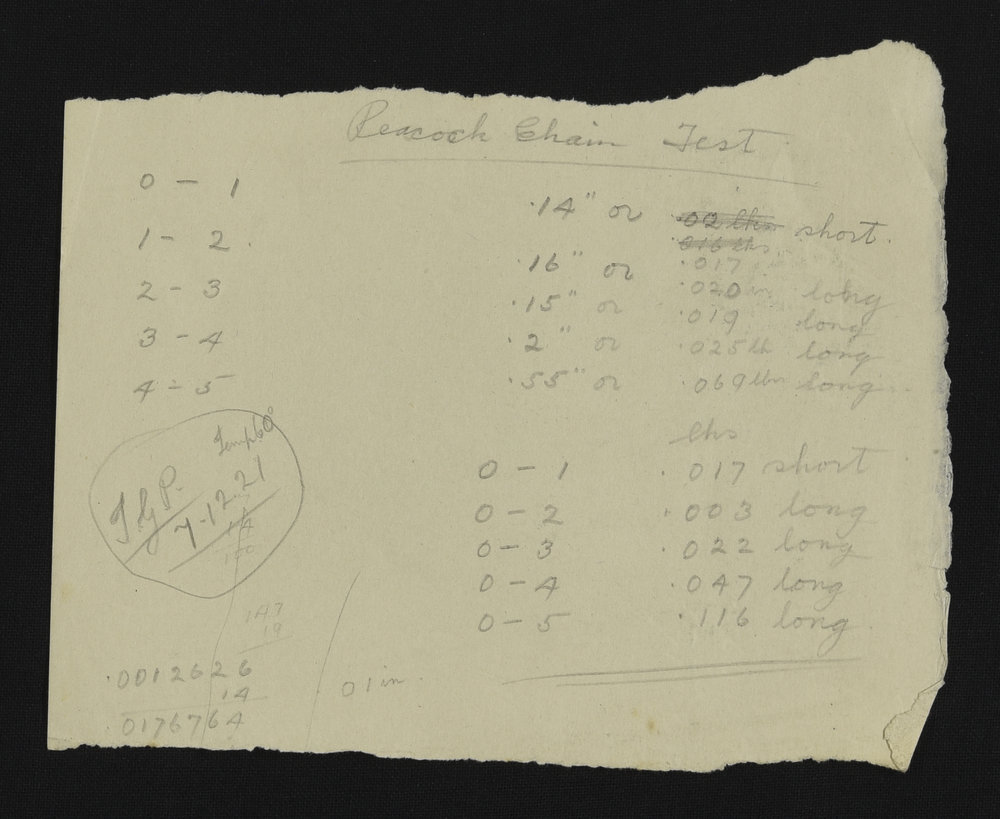 Peacock Chain Test
0 - 1 .14" or .02 lks short.
.016 lks
.017
1 - 2. .16" or .020 long
2 - 3 .15" or .019 long
3 - 4 .2" or .025 lk long
4 - 5 .55" or .069 lks long
Temp 60°
7.12.21
lks
0 - 1 .017 short
0 - 2 .003 long
0 - 3 .022 long
0 - 4 .047 long
0 - 5 .116 long
147
19
.0012626
14
.0176764
.01 in.